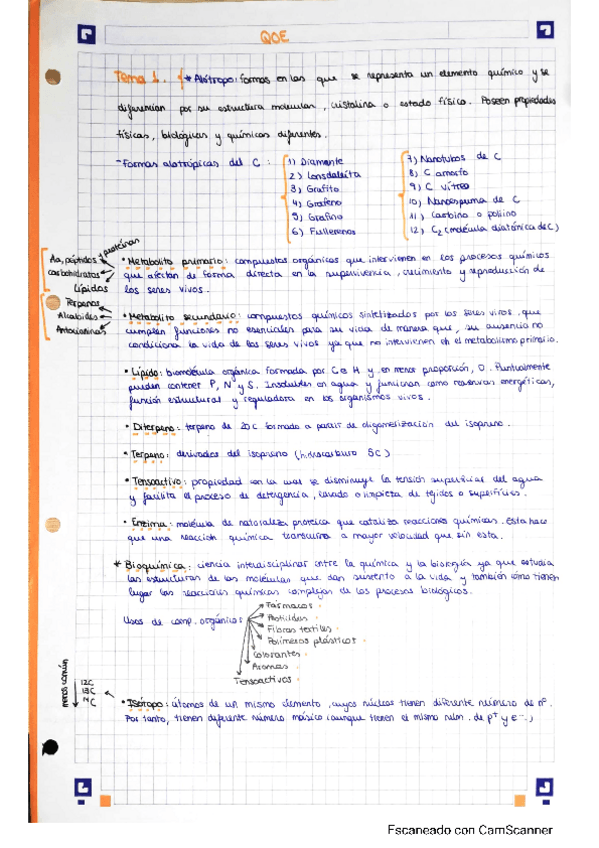 QOE
Tema 1. * Alótropo: formas en las que se representa un elemento químico y se
diferencian por su estructura molecular, cristalina o estado físico. Poseen propiedades
físicas, biológicas y químicas diferentes.
- Formas alotrópicas del C:
1) Diamante
2) Lonsdaleíta
3) Grafito
4) Grafeno
5) Grafino
6) Fullerenos
7) Nanotubos de C
8) C amorfo
9) C vítreo
10) Nanoespuma de C
11) Carbino o poliino
12) C2 (molécula diatónica de C)
Aa, péptidos y proteínas
carbohidratos
Lípidos
• Metabolito primario: compuestos orgánicos que intervienen en los procesos químicos
que afectan de forma directa en la supervivencia, crecimiento y reproducción de
los seres vivos.
Terpenos
Alcaloides
Antocianinas
• Metabolito secundario: compuestos químicos sintetizados por los seres vivos que
cumplen funciones no esenciales para su vida de manera que, su ausencia no
condiciona la vida de los seres vivos ya que no intervienen en el metabolismo primario.
• Lípido: biomolécula orgánica formada por C e H y en menor proporción, O. Puntualmente
pueden contener P, N y S. Insolubles en agua y funcionan como reservas energéticas,
función estructural y reguladora en los organismos vivos.
• Diterpeno: terpeno de 20C formado a partir de oligomerización del isopreno.
• Terpeno: derivados del isopreno (hidrocarburo 5C)
• Tensoactivo: propiedad con la cual se disminuye la tensión superficial del agua
y facilita el proceso de detergencia, lavado o limpieza de tejidos o superficies.
• Enzima: molécula de naturaleza proteica que cataliza reacciones químicas. Esta hace
que una reacción química transcurra a mayor velocidad que sin esta.
* Bioquímica: ciencia interdisciplinar entre la química y la biología ya que estudia
las estructuras de las moléculas que dan sustento a la vida y también cómo tienen
lugar las reacciones químicas complejas de los procesos biológicos.
Usos de comp. orgánicos
Fármacos
Pesticidas
Fibras textiles
Polímeros plásticos
Colorantes
Aromas
Tensoactivos
menos común
12C
13C
14C
• Isótopo: átomos de un mismo elemento, cuyos núcleos tienen diferente número de nº.
Por tanto, tienen diferente número másico (aunque tienen el mismo núm. de p+ y e-.)
Escaneado con CamScanner